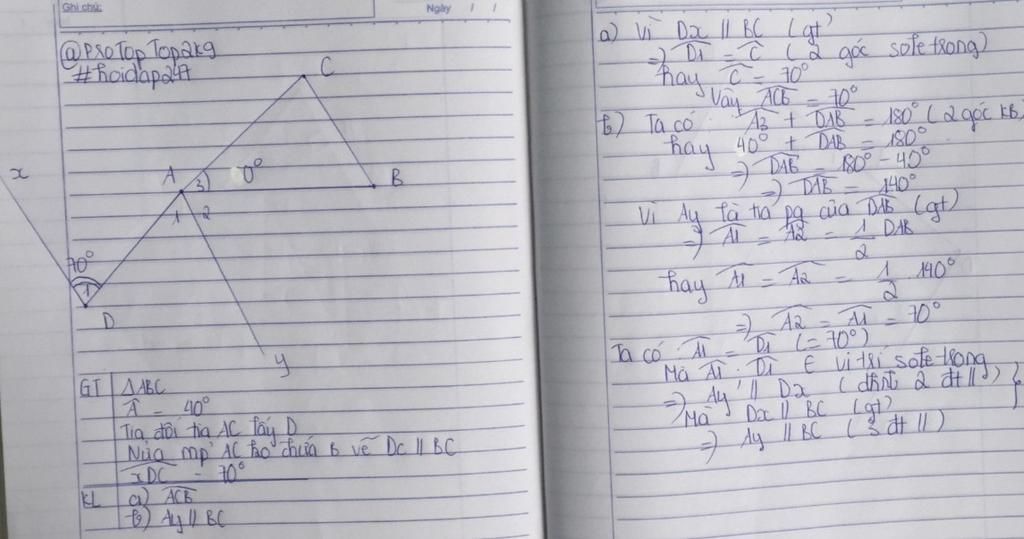 Ghi chú:
Ngày / /
@ProTopTop2k9
#hoidap247
C
A
3
0°
B
1 2
x
70°
1
D
y
GT ΔABC
Â = 40°
Tia đối tia AC lấy D
Nửa mp AC ko chứa B vẽ DC // BC
xDC = 70°
KL a) ACB
b) Ay // BC
a) Vì Dx // BC (gt)
=) D1 = C (2 góc sole trong)
hay C = 70°
Vậy ACB = 70°
b) Ta có A3 + DAB = 180° (2 góc kb)
hay 40° + DAB = 180°
=) DAB = 180° - 40°
=) DAB = 140°
Vì Ay là tia pg của DAB (gt)
=) A1 = A2 = 1/2 DAB
hay A1 = A2 = 1/2 140°
=) A2 = A1 = 70°
Ta có A1 = D1 (= 70°)
Mà A1, D1 ∈ vị trí sole trong
=) Ay // Dx (dhnb 2 đt //)
Mà Dx // BC (gt)
=) Ay // BC (3 đt //)